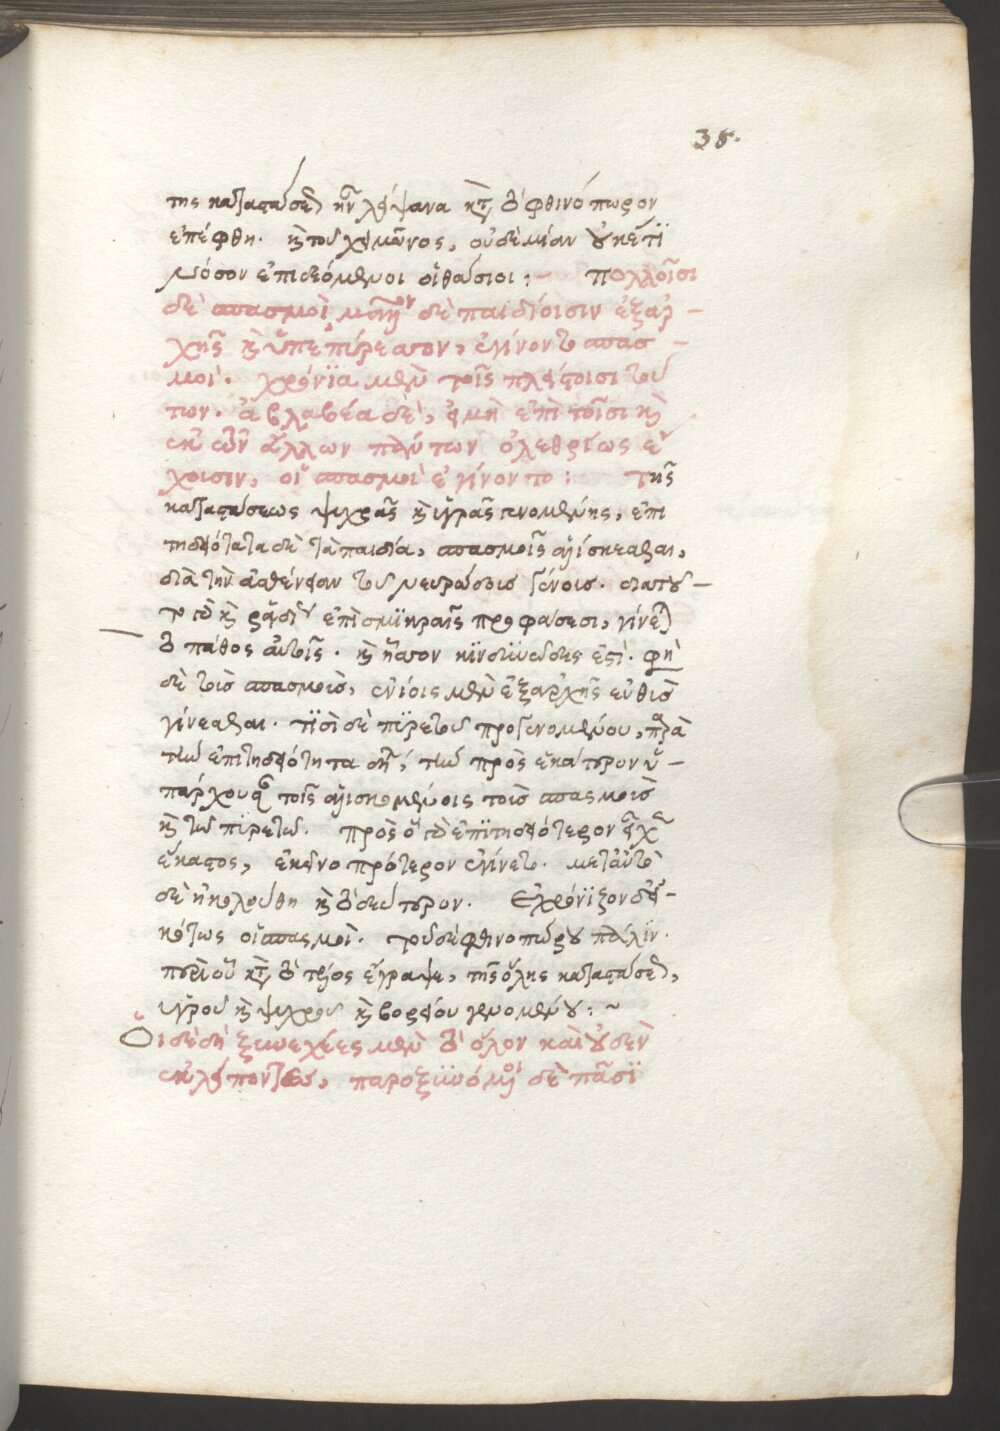 38.
της καταστάσεως ἦν λείψανα κατὰ τὸ φθινόπωρον
ἐπέφθη. καὶ τοῦ χειμῶνος, οὐδεμίαν οὐκέτι
νόσον ἐπιδεόμενοι οἱ θάσιοι :- πολλοῖσι
δὲ σπασμοὶ, μᾶλλον δὲ παιδίοισιν ἐξαρ-
χῆς καὶ ὑπεπύρεσσον, ἐγίνοντο σπασ-
μοί. χρόνια μὲν τοῖς πλείστοισι τού
των. ἀβλαβέα δὲ, εἰ μὴ ἐπὶ τοῖσι καὶ
ἐκ τῶν ἄλλων πάντων ὀλεθρίως ἔ
χουσιν, οἱ σπασμοὶ ἐγίνοντο : Τῆς
καταστάσεως ψυχρᾶς καὶ ὑγρᾶς γενομένης, ἐπι
τηδειότατα δὲ τὰ παιδία, σπασμοῖς ἁλίσκεσθαι,
διὰ τὴν ἀσθένειαν τοῦ νευρώδους γένους. διὰ τοῦ-
το καὶ ῥαδίως ἐπὶ σμικραῖς προφάσεσι, γίνεται
τὸ πάθος αὐτοῖς. καὶ ἧσσον κινδυνῶδες ἐστί. φησὶ
δὲ τοὺς σπασμοὺς, ἐνίοις μὲν ἐξαρχῆς εὐθὺς
γίνεσθαι. τισὶ δὲ πυρετοῦ προγενομένου, παρὰ
τὴν ἐπιτηδειότητα δηλονότι, τὴν πρὸς ἑκάτερον ὑ-
πάρχουσαν τοῖς ἁλισκομένοις τοῖς σπασμοῖς
καὶ τῷ πυρετῷ. πρὸς ὃ γὰρ ἐπιτηδειότερον εἶχεν
ἕκαστος, ἐκεῖνο πρότερον ἐγίνετο. μετ' αὐτὸ
δὲ ἠκολούθει καὶ τὸ δεύτερον. Ἐχρόνιζον δ' εἰ-
κότως οἱ σπασμοὶ. τοῦ δὲ φθινοπώρου πάλιν.
περὶ οὗ κατὰ τὸ τέλος ἔγραψε, τῆς ὅλης καταστάσεως,
ὑγροῦ καὶ ψυχροῦ καὶ βορείου γενομένου : ~
Οἱ δὲ δὴ ξυνεχέες μὲν τὸ ὅλον καὶ οὐδὲν
ἐκλείποντες, παροξυνόμενοι δὲ πᾶσι